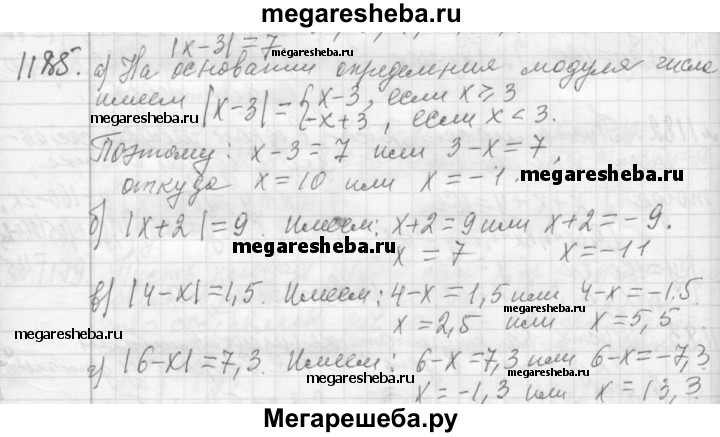 megaresheba.ru
|x-3|=7
1185. а) На основании определения модуля числа
имеем |x-3|={x-3, если x≥3
-x+3, если x<3.
megaresheba.ru
megaresheba.ru
Поэтому: x-3=7 или 3-x=7,
откуда x=10 или x=-1.
megaresheba.ru
б) |x+2|=9. Имеем: x+2=9 или x+2=-9.
megaresheba.ru
x=7 x=-11
в) |4-x|=1,5. Имеем: 4-x=1,5 или 4-x=-1,5.
megaresheba.ru
x=2,5 или x=5,5
megaresheba.ru
г) |6-x|=7,3. Имеем: 6-x=7,3 или 6-x=-7,3
megaresheba.ru
x=-1,3 или x=13,3
megaresheba.ru
Мегарешеба.ру